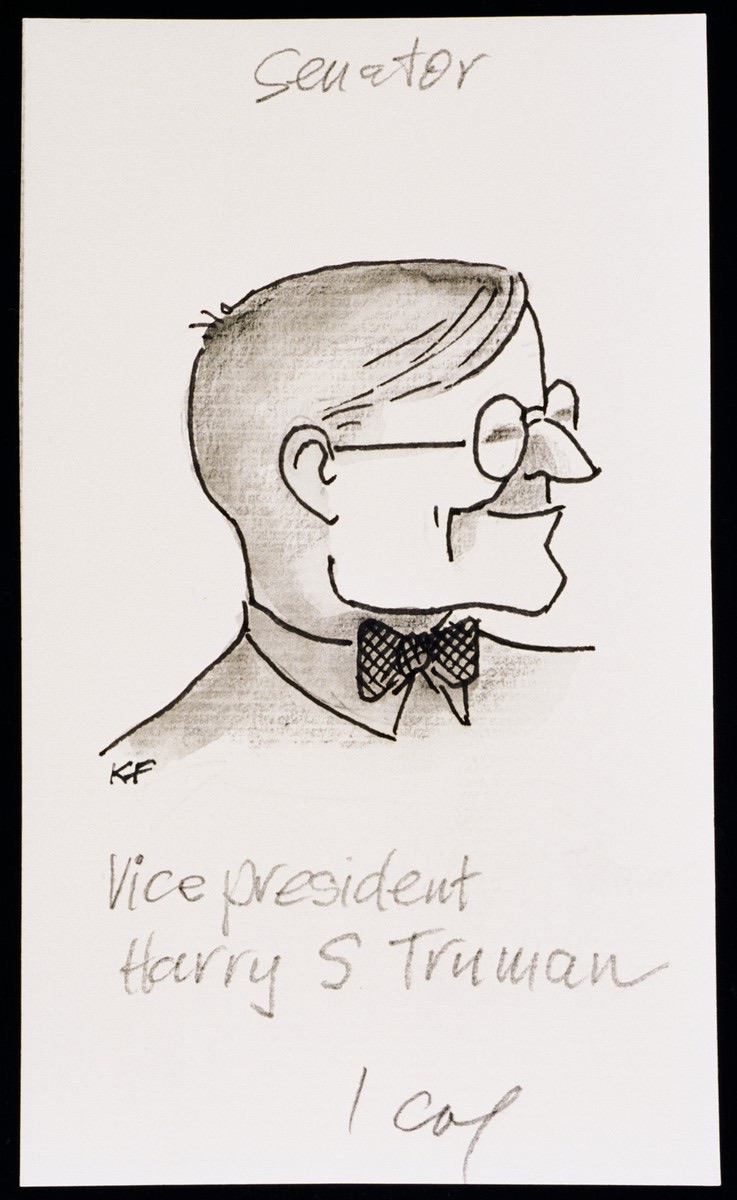 Senator
KF
Vice president
Harry S Truman
1 col